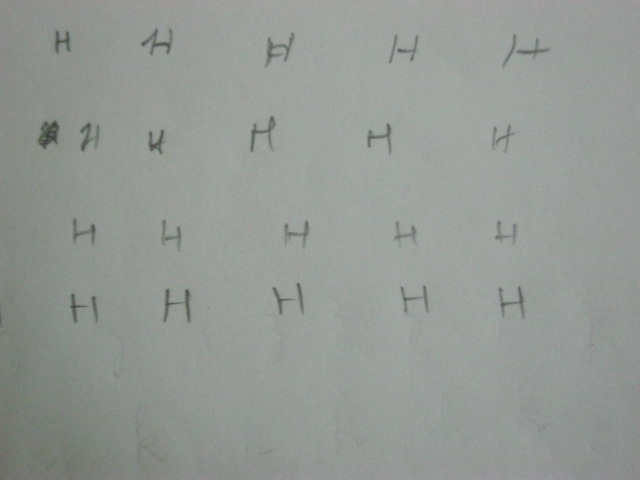 H H H H H
H H H H H
H H H H H
H H H H H